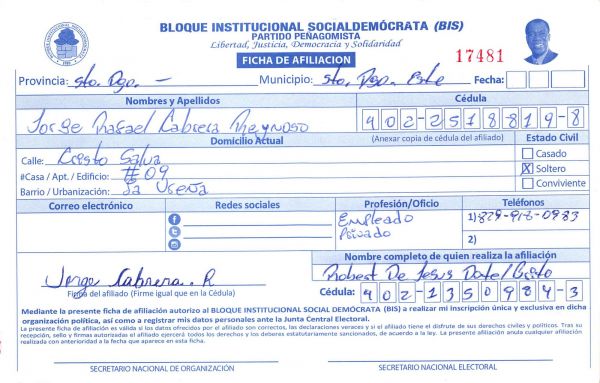 BLOQUE INSTITUCIONAL SOCIALDEMÓCRATA (BIS)
PARTIDO PEÑAGOMISTA
Libertad, Justicia, Democracia y Solidaridad
FICHA DE AFILIACIÓN
17481
Provincia: Sto. Dgo. — Municipio: Sto. Dgo. Este Fecha:
Nombres y Apellidos Cédula
Jorge Rafael Cabrera Reynoso 402-2518819-8
Domicilio Actual (Anexar copia de cédula del afiliado) Estado Civil
Calle: Cristo Salva Casado
#Casa / Apt. / Edificio: #09 X Soltero
Barrio / Urbanización: La Ureña Conviviente
Correo electrónico Redes sociales Profesión/Oficio Teléfonos
Empleado 1) 829-916-0983
Privado 2)
Nombre completo de quien realiza la afiliación
Jorge Cabrera. R Robert De Jesus
Firma del afiliado (Firme igual que en la Cédula) Cédula: 402-1350984-3
Mediante la presente ficha de afiliación autorizo al BLOQUE INSTITUCIONAL SOCIAL DEMÓCRATA (BIS) a realizar mi inscripción única y exclusiva en dicha
organización política, así como a registrar mis datos personales ante la Junta Central Electoral.
La presente ficha de afiliación es válida si los datos ofrecidos por el afiliado son correctos, las declaraciones veraces y si el afiliado tiene el disfrute de sus derechos civiles y políticos. Tras su
recepción, sello y firmas autorizadas el afiliado ejercerá todos los derechos y los deberes estatutariamente sancionados, de acuerdo a la ley. La presente afiliación anula cualquier afiliación
realizada con anterioridad a la fecha que aparece en esta ficha.
SECRETARIO NACIONAL DE ORGANIZACIÓN SECRETARIO NACIONAL ELECTORAL